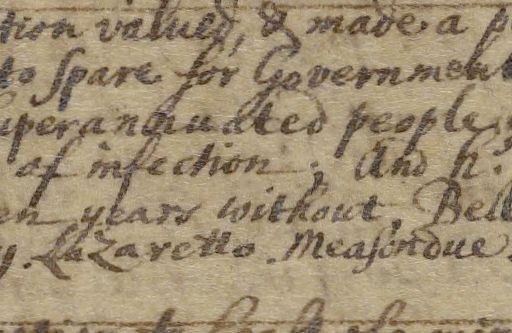 tion valued, & made a p
to spare for Government
uperannuated people
of infection; And h.
en years without, Bell
y. Lazaretto. Measindue.